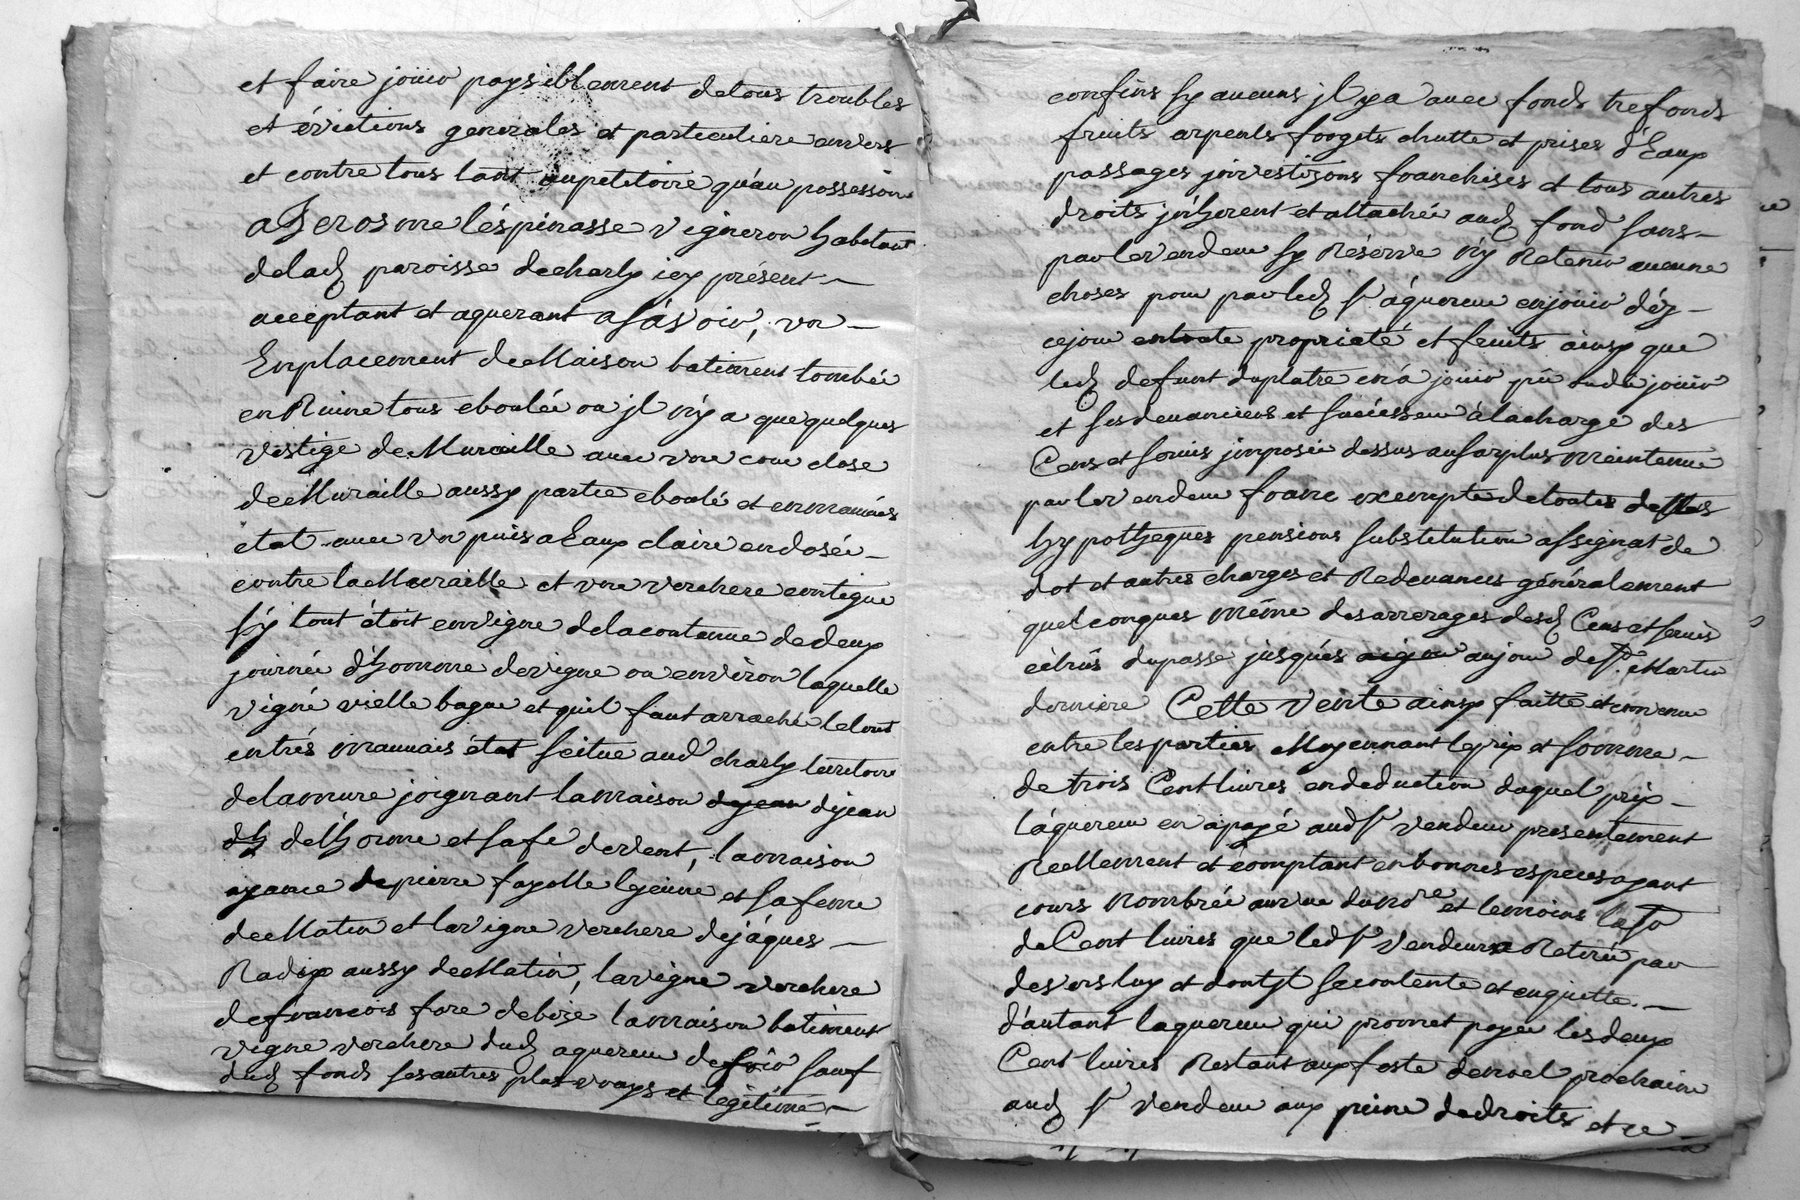 et faire jouir paysiblement de tous troubles
et évictions generales et particuliere envers
et contre tous tant aupetitoire qu'au possessoire
a Jerosme léspinasse vigneron habitant
de lad paroisse de charly icy présent
acceptant et aquerant a sávoir, un
Emplacement de Maison batiment tombée
en Ruine tous eboulée ou jl n'y a que quelques
vestige de Muraille avec une cour close
de Muraille aussy partie eboulé et en mauvais
etat avec un puis a Eaux claire
contre la Muraille et une verchere contigue
sy tout étoit en vigne de la contenue de deux
journée d'homme de vigne ou environ laquelle
vigne vielle et quil faut arraché le tout
en trés mauvais état scitue aud charly territoire
de la mure joignant la maison de jean
de l'horme et sa fe de vent, la maison
de pierre fayolle le jeune et sa feme
de Matin et la vigne verchere de jáques
Radix aussy de Matin, la vigne verchere
de francois fore de bize la maison batiment
vigne verchere dud aquereur de soir sauf
dud fonds ses autres plus vrays et legitime
confins sy aucuns jl y a avec fonds trefonds
fruits arpents forgets chutte et prises d'Eaux
passages jnvestizons franchises et tous autres
droits jnherent et attachée aud fond sans
par le vendeur sy Réserve n'y Retenir aucune
choses pour par led sr áquereur en jouir déz
cejour en toute propriété et fruits ainsy que
led defunt duplatre en à jouir pû ou dû jouir
et ses devanciers et à la charge des
Cens et servis jmposée dessus au surplus meintenue
par le vendeur franc exempte de toutes dettes
hypotheques pensions substitution assignat de
dot et autres charges et Redevances généralement
quelconques même des arrerages desd Cens et servis
du passe jusqués aujour de St Martin
derniere Cette vente ainsy faitte et convenue
entre les parties Moyennant le prix et somme
de trois Cent livres en deduction duquel prix
l'áquereur en a payé aud sr vendeur presentement
Reellement et comptant en bonnes especes ayant
cours Nombrée aux vue du Nore et temoins
de Cent livres que led sr vendeur a Retirée par
devers luy et dont jl se contente et en quitte
d'autant l'aquereur qui promet payer les deux
Cent livres Restant aux feste de noel prochaine
aud sr vendeur aux peine de droits et ce